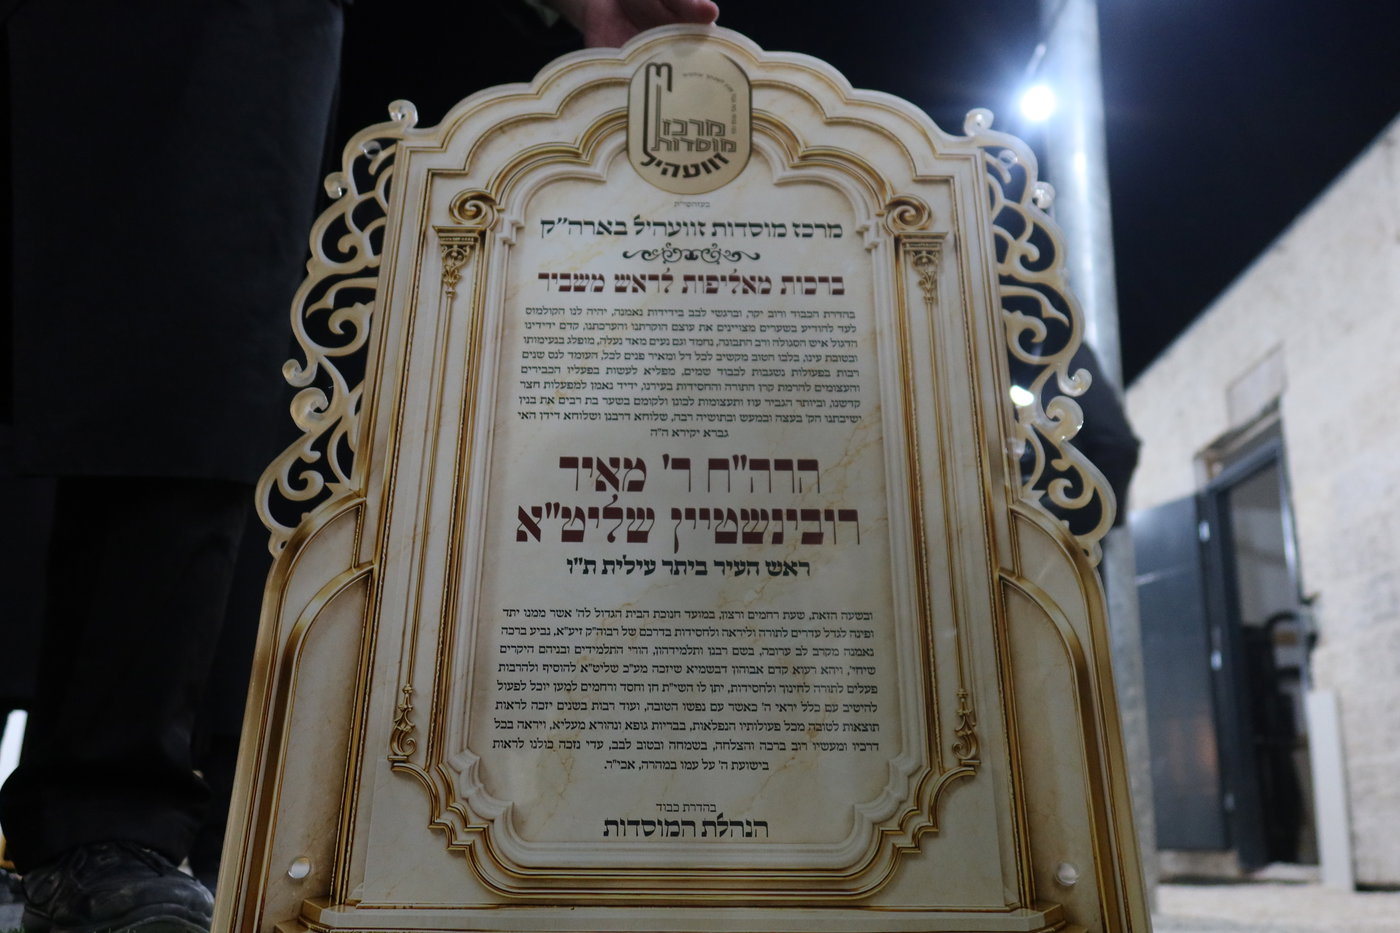 מרכז
מוסדות
זוועהיל
בעזהשי"ת
מרכז מוסדות זוועהיל בארה"ק
ברכות מאליפות לראש משביר
בהדרת הכבוד ורוב יקר, וברגשי לבב בידידות נאמנה, יהיה לנו הקולמוס
לעד להודיע בשערים מצויינים את עוצם הוקרתנו והערכתנו, קדם ידידינו
הדגול איש הסגולה ורב התבונה, נחמד וגם נעים מאד נעלה, מופלג בנעימותו
ובטובת עינו, בלבו הטוב מקשיב לכל דל ומאיר פנים לכל, העומד לנס שנים
רבות בפעולות נשגבות לכבוד שמים, מפליא לעשות בפעליו הכבירים
והעצומים להרמת קרן התורה והחסידות בעירנו, ידיד נאמן למפעלות חצר
קדשנו, וביותר הגביר עוז ותעצומות לכונן ולקומם בשער בת רבים את בנין
ישיבתנו הק' בעצה ובמעש ובתושיה רבה, שלוחא דרבנן ושלוחא דידן האי
גברא יקירא ה"ה
הרה"ח ר' מאיר
רובינשטיין שליט"א
ראש העיר ביתר עילית ת"ו
ובשעה הזאת, שעת רחמים ורצון, במועד חנוכת הבית הגדול לה' אשר ממנו יתד
ופינה לגדל עדרים לתורה וליראה ולחסידות בדרכם של רבוה"ק זיע"א, נביע ברכה
נאמנה מקרב לב ערומה, בשם רבנן ותלמידהון, הורי התלמידים ובניהם היקרים
שיחי', ויהא רעוא קדם אבוהון דבשמיא שיזכה מע"כ שליט"א להוסיף ולהרבות
פעלים לתורה לחינוך ולחסידות, יתן לו השי"ת חן וחסד ורחמים למען יוכל לפעול
להיטיב עם כלל יראי ה' כאשר עם נפשו הטובה, ועוד רבות בשנים יזכה לראות
תוצאות לטובה מכל פעולותיו הנפלאות, בבריות גופא ונהורא מעליא, ויראה בכל
דרכיו ומעשיו רוב ברכה והצלחה, בשמחה ובטוב לבב, עדי נזכה כולנו לראות
בישועת ה' על עמו במהרה, אכי"ר.
בהדרת כבוד
הנהלת המוסדות